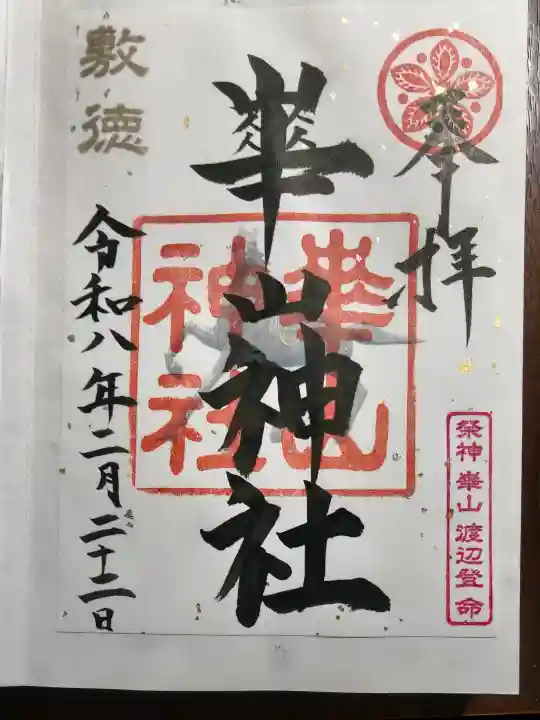 奉拝
崋山神社
崋山神社
祭神 崋山 渡辺登 命
敷徳
令和八年二月二十二日